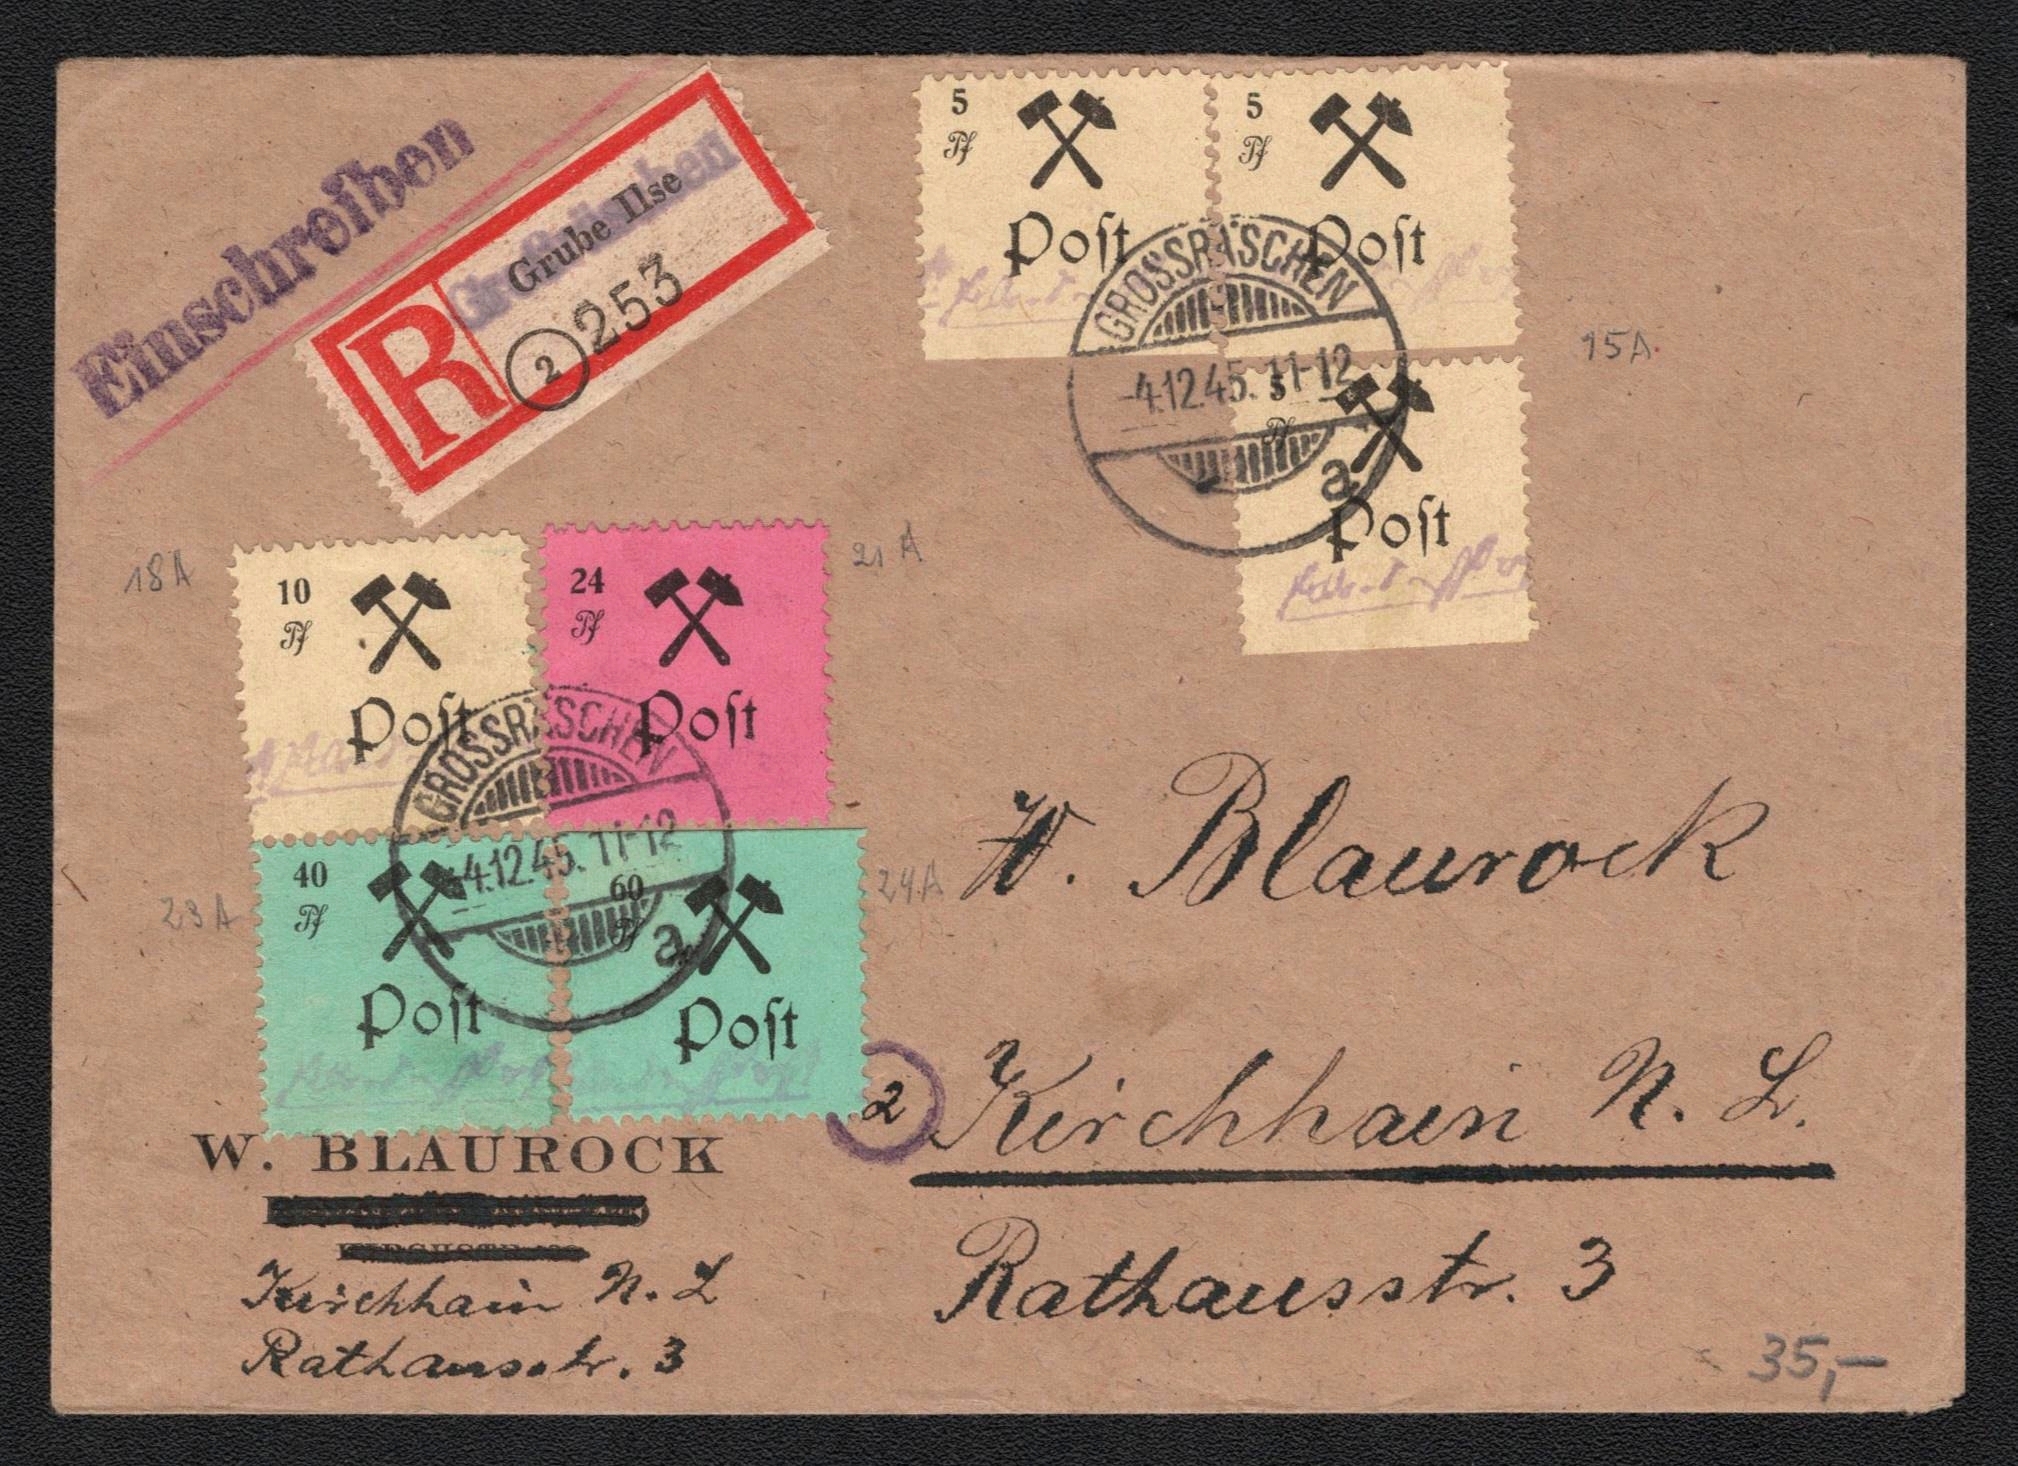 Einschreiben
R
Grube Ilse
Großräschen
2
253
5
Pf
Post
5
Pf
Post
GROSSRÄSCHEN
-4.12.45. 11-12
a
5
Pf
Post
15A
18A
10
Pf
Post
24
Pf
Post
21 A
GROSSRÄSCHEN
-4.12.45. 11-12
a
23A
40
Pf
Post
60
Pf
Post
24A
W. Blaurock
2
Kirchhain N. L.
Rathausstr. 3
W. BLAUROCK
Kirchhain N. L
Rathausstr. 3
35,-